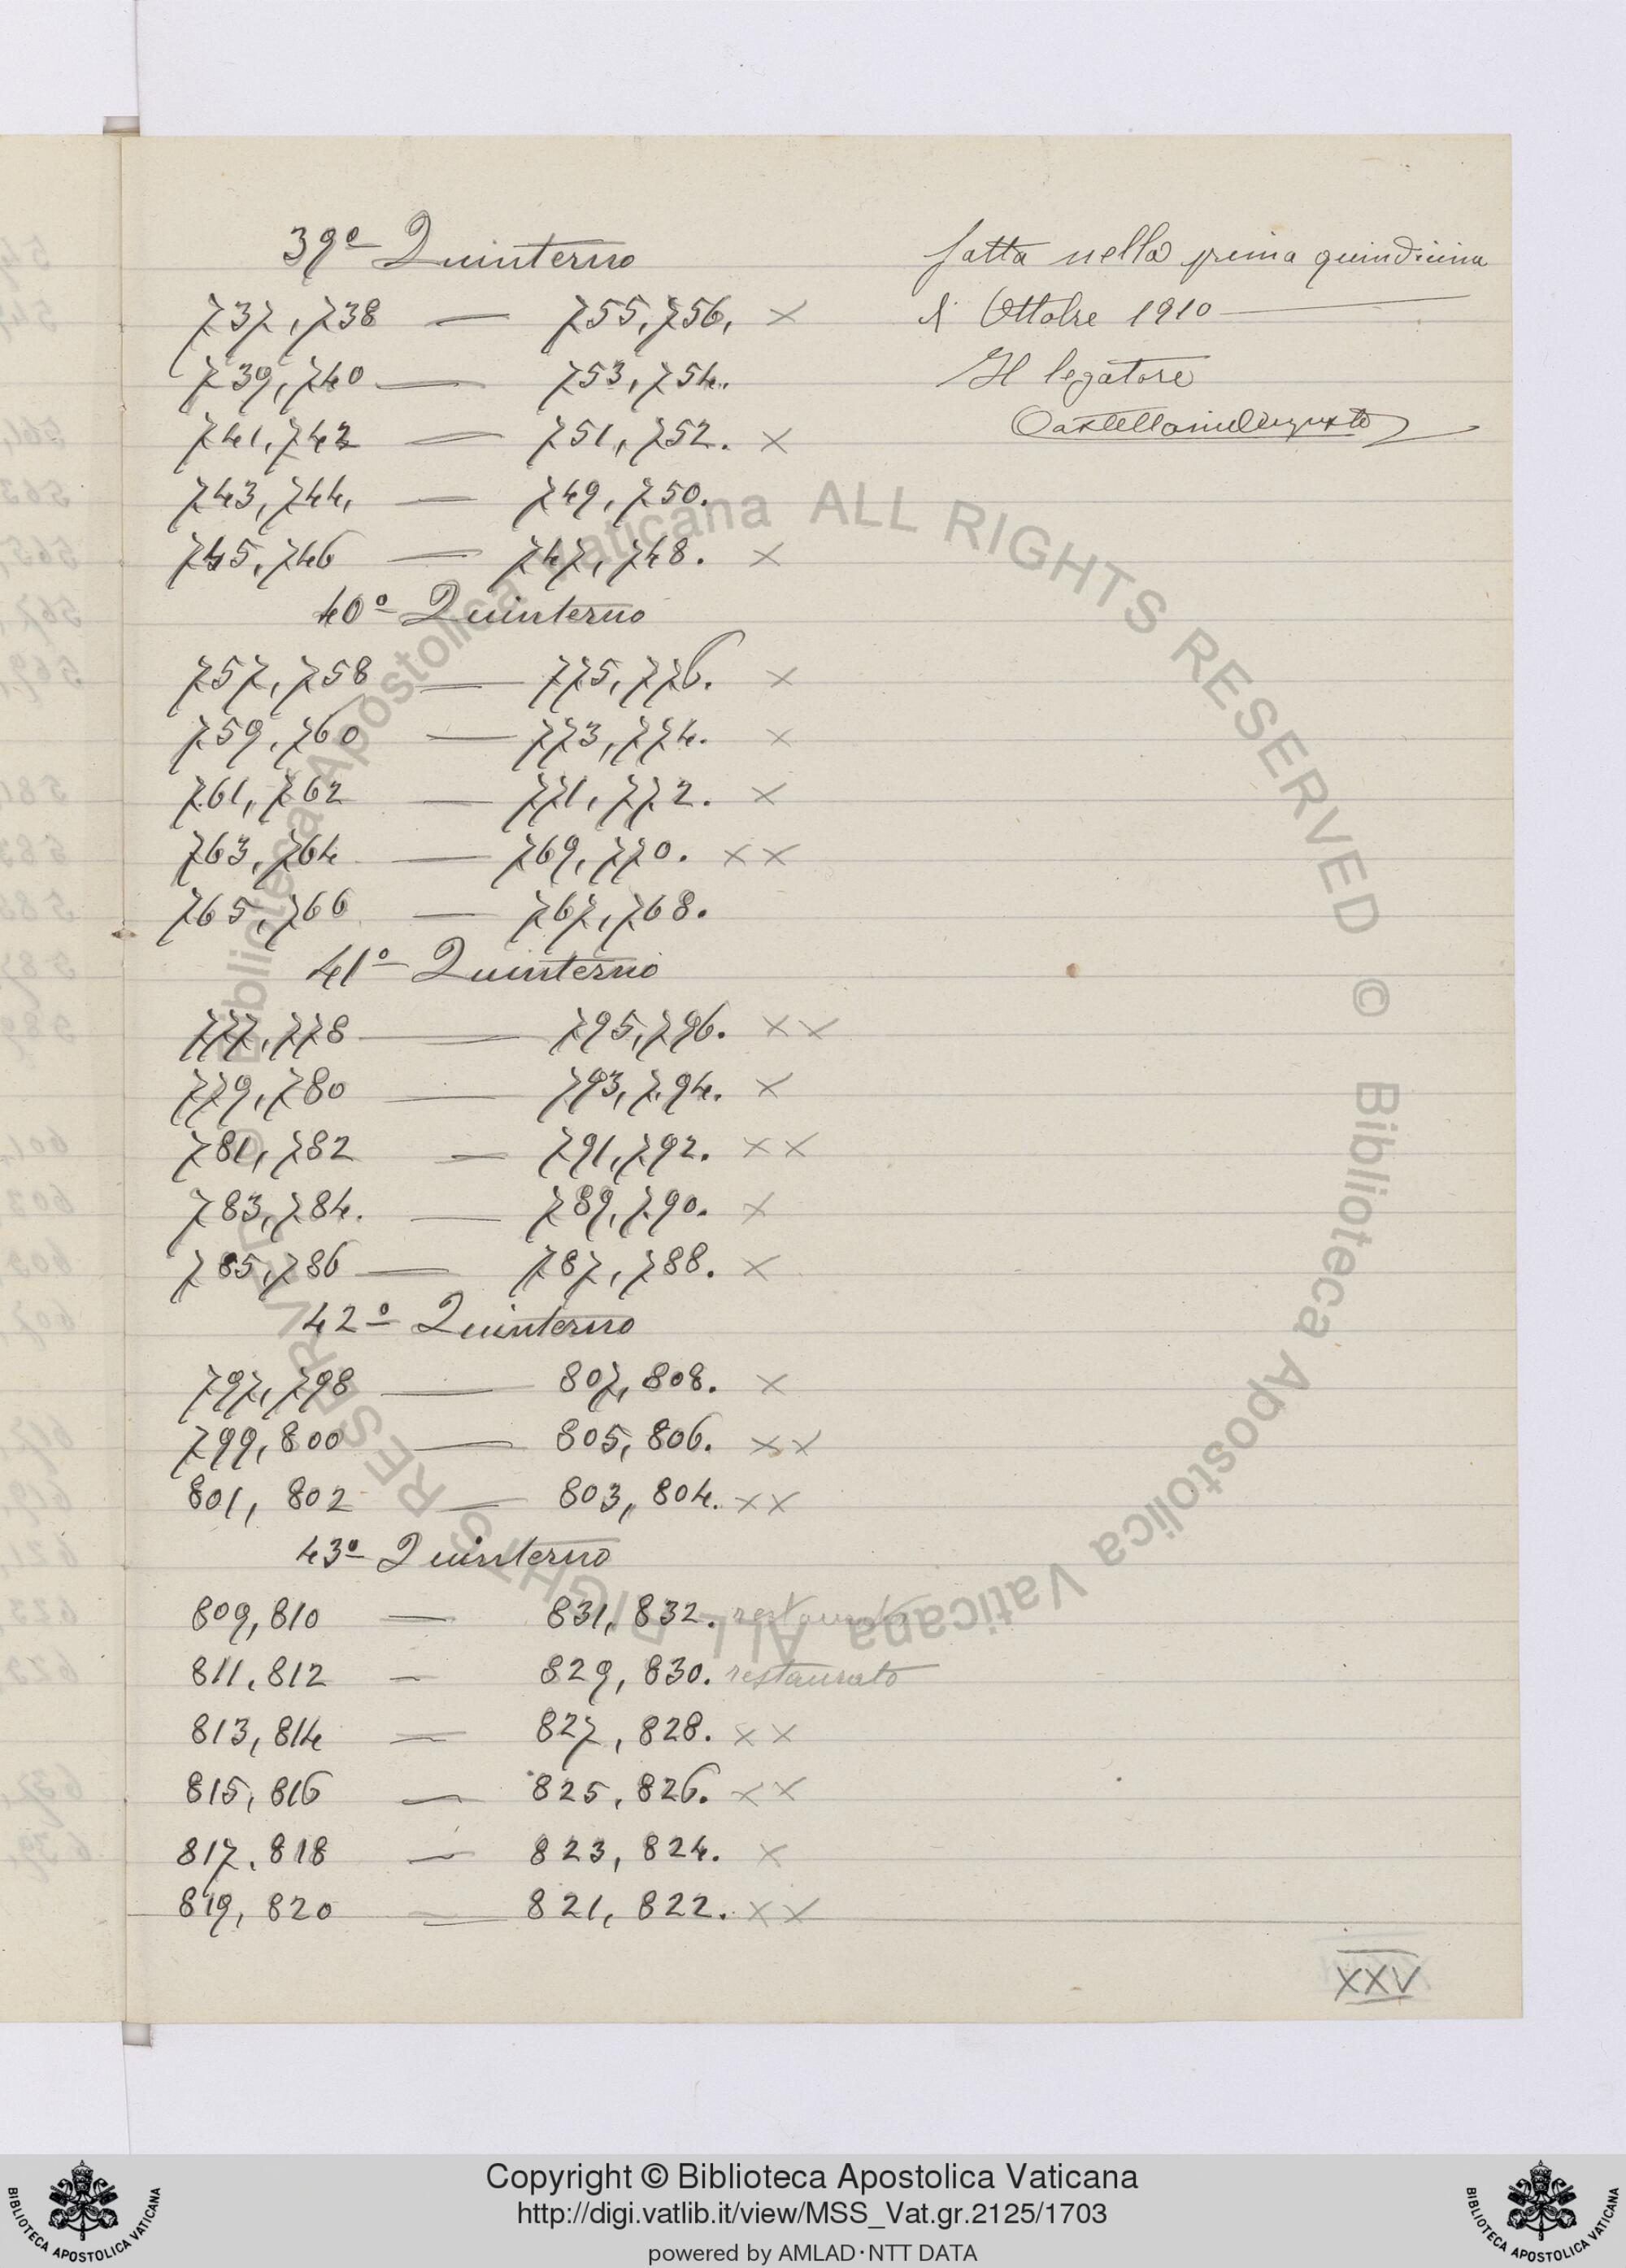 39º Quinterno
737, 738 — 755, 756, ×
739, 740 — 753, 754.
741, 742 — 751, 752. ×
743, 744, — 749, 750.
745, 746 — 747, 748. ×
40º Quinterno
757, 758 — 775, 776. ×
759, 760 — 773, 774. ×
761, 762 — 771, 772. ×
763, 764 — 769, 770. ××
765, 766 — 767, 768.
41º Quinterno
777, 778 — 795, 796. ××
779, 780 — 793, 794. ×
781, 782 — 791, 792. ××
783, 784. — 789, 790. ×
785, 786 — 787, 788. ×
42º Quinterno
797, 798 — 807, 808. ×
799, 800 — 805, 806. ××
801, 802 — 803, 804. ××
43º Quinterno
809, 810 — 831, 832. restaurato
811, 812 — 829, 830. restaurato
813, 814 — 827, 828. ××
815, 816 — 825, 826. ××
817, 818 — 823, 824. ×
819, 820 — 821, 822. ××
fatta nella prima quindicina
di Ottobre 1910 —
Il legatore
Castellani Augusto
XXV
© Biblioteca Apostolica Vaticana ALL RIGHTS RESERVED © Biblioteca Apostolica Vaticana ALL RIGHTS RESERVED
Copyright © Biblioteca Apostolica Vaticana
http://digi.vatlib.it/view/MSS_Vat.gr.2125/1703
powered by AMLAD·NTT DATA
BIBLIOTECA APOSTOLICA VATICANA
BIBLIOTECA APOSTOLICA VATICANA